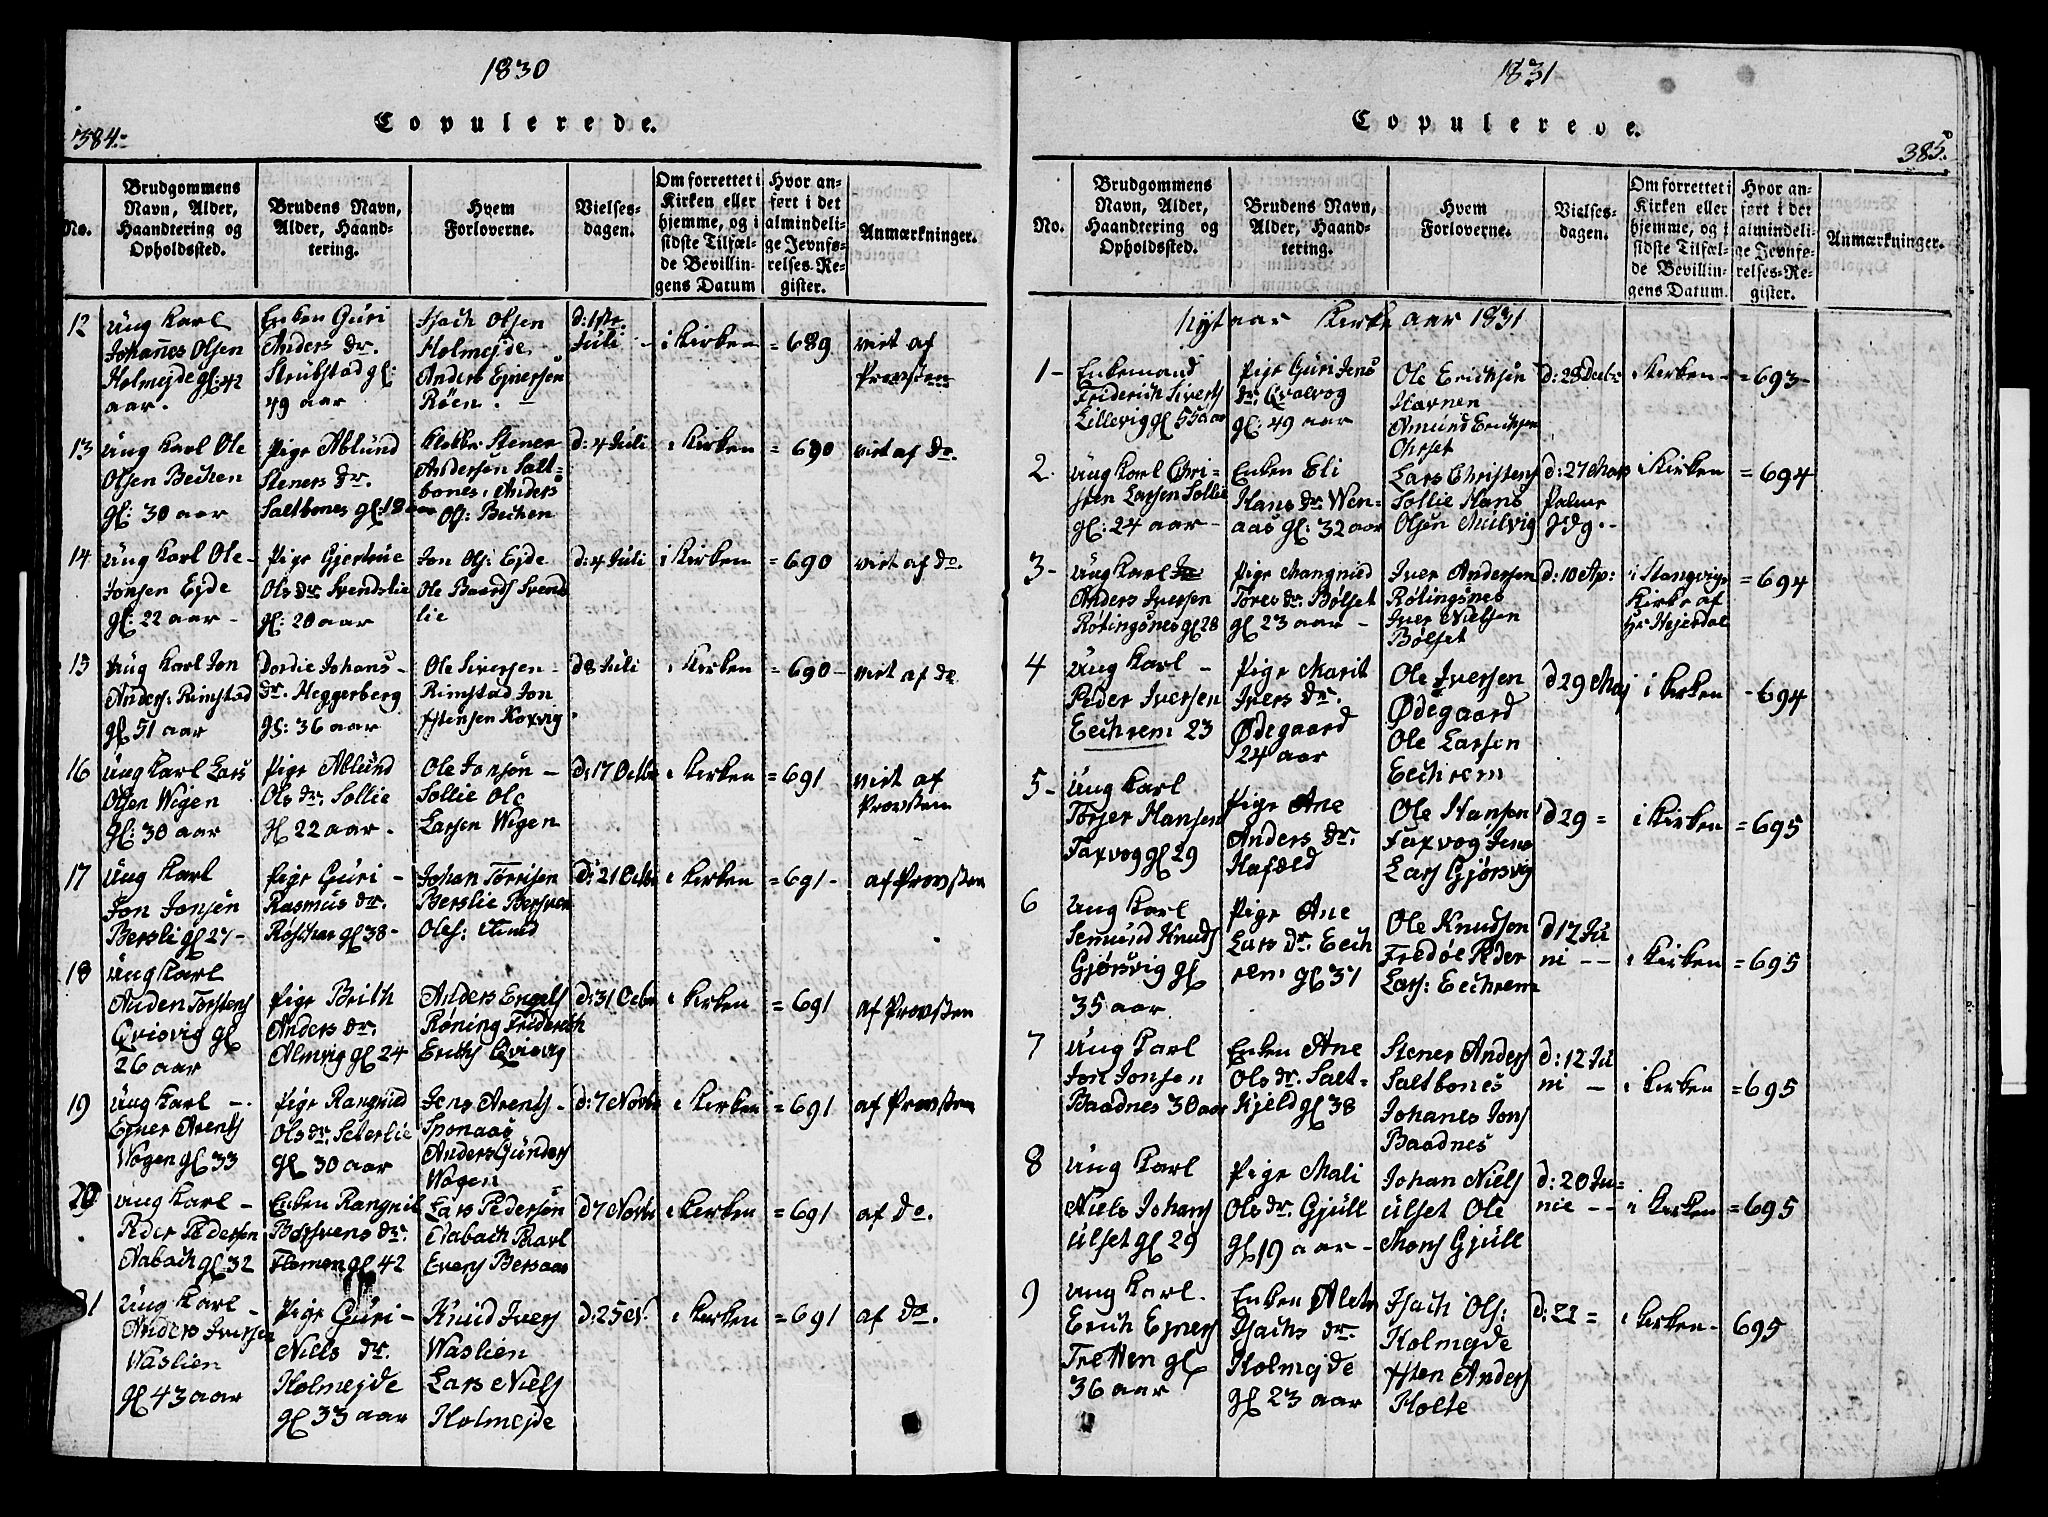 1830
Copulerede.
384.
No.
Brudgommens
Navn, Alder,
Haandtering og
Opholdssted.
Brudens Navn,
Alder, Haand-
tering.
Hvem
Forloverne.
Vielses-
dagen.
Om forrettet i
Kirken eller
hjemme, og i
sidste Tilfæl-
de Bevillin-
gens Datum
Hvor an-
ført i det
almindeli-
ge Jevnfø-
relses-Re-
gister.
Anmærkninger.
12
Ung Karl
Johannes Olsen
Holmejde gl: 42
aar.
Enken Guri
Anders dr.
Strubstad gl:
49 aar
Isach Olsen
Holmejde
Anders Ejnersen
Röen.
d: 1ste
Juli
i Kirken
= 689
viet af
Provsten
13
Ung Karl Ole
Olsen Bechen
gl: 30 aar
Pige Ablund
Steners dr.
Saltbones gl: 18 aar
Klokker Stener
Andersøn Salt=
bones, Anders
Ols: Bechen
d: 4 Juli
i Kirken
= 690
viet af do.
14
Ung Karl Ole
Jonsen Ejde
gl: 22 aar
Pige Gjertrue
Ols dr. Svendslie
gl: 20 aar
Jon Ols: Ejde
Ole Baards Svens
lie
d: 4 Juli
i Kirken
= 690
viet af do.
15
Ung Karl Jon
Anders: Rimstad
gl 51 aar
Dordie Johans
dr. Heggerberg
gl: 36 aar
Ole Siversen
Rimstad Jon
Istensen Koxvig
d 8 Juli
i Kirken
= 690
viet af do
16
Ung Karl Lars
Olsen Wigen
gl: 30 aar
Pige Ablund
Ols dr. Sollie
gl 22 aar
Ole Jonsøn
Sollie Ole
Larsen Wigen
d: 17 Octbr
i Kirken
= 691
viet af
Provsten
17
Ung Karl
Jon Jonsen
Bersli gl 27
Pige Guri
Rasmus dr.
gl 38
Johan Torrisen
Berslie Bersven
Oles:
d: 21 Octbr
i Kirken
= 691
af Provsten
18
Ung Karl
Auden Torstens
Qvisvig gl
26 aar
Pige Brith
Anders dr.
Almvig gl 24
Anders Engels
Røning Friderich
Erichs Qvisvig
d: 31 Octbr
i Kirken
= 691
af Provsten
19
Ung Karl
Ejner Arents
Wogen gl 33
Pige Rangnied
Ols dr. Seterlie
gl 30 aar
Jens Arents
Sponaas
Anders Gunders
Wogen
d: 7 Novbr
i Kirken
= 691
af Provsten
20
Ung Karl
Peder Pedersen
Aabach gl 32
Enken Rangniel
Bersvens dr.
Flemen gl 42
Lars Pedersøn
Aabach Paul
Evers Bersaas
d 7 Novbr
i Kirken
= 691
af do.
21
Ung Karl
Anders Iversen
Waslien
gl 43 aar
Pige Guri
Niels dr.
Holmejde
gl 33 aar
Knud Ivers
Waslien
Lars Niels
Holmejde
d: 25 ej.
i Kirken
= 691
af do.
1831
Copulerede.
385.
No.
Brudgommens
Navn, Alder,
Haandtering og
Opholdssted.
Brudens Navn,
Alder, Haand-
tering.
Hvem
Forloverne.
Vielses-
dagen.
Om forrettet i
Kirken eller
hjemme, og i
sidste Tilfæl-
de Bevillin-
gens Datum.
Hvor an-
ført i det
almindeli-
ge Jevnfø-
relses-Re-
gister.
Anmærkninger.
Nyt aar Kirke aar 1831
1
Enkemand
Friderich Sivers
Lillevig gl 55 aar
Pige Guri Jens
dr. Qvalvog
gl: 49 aar
Ole Erichsøn
Havnen
Amund Erichsen
Ohrset
d: 28 Decbr
i Kirken
= 693
2.
Ung Karl Chri-
sten Larsen Sollie
gl: 24 aar
Enken Eli
Hans dr. Wen-
aas gl: 32 aar
Lars Christens
Sollie Hans
Olsen Mulvig
d: 27 Mars
Palme
Sdg.
i Kirken
= 694
3
Ung Karl
Anders Iversen
Rötingsnes gl 28
Pige Mangnied
Tores dr. Bølset
gl 23 aar
Iver Andersen
Rötingsnes
Iver Nielsen
Bølset
d: 10 Ap:
i Stangvigs
Kirke af
Hr Hejerdal
= 694
4
Ung Karl
Peder Iversen
Eechrem 23
Pige Marit
Ivers dr.
Ødegaard
24 aar
Ole Iversen
Ødegaard
Ole Larsen
Eechrem
d 29 Maj
i Kirken
- 694
5
Ung Karl
Torger Hansen
Taxvog gl 29
Pige Ane
Anders dr.
Hafæld
Ole Hansen
Taxvog Jens
Lars Gjørsvig
d 29 =
i Kirken
= 695
6
Ung Karl
Semund Knuds
Gjørsvig gl
35 aar
Pige Ane
Lars dr. Eech
rem gl 37
Ole Knudsøn
Fredøe Peder
Lars: Eechrem
d 12 Ju
ni
i Kirken
= 695
7
Ung Karl
Jon Jonsen
Baadnes 30 aar
Enken Ane
Ols dr. Salt-
Kjeld gl 38
Stener Anders
Saltbones
Johanes Jons
Baadnes
d: 12 Ju
ni
i Kirken
= 695
8
Ung Karl
Niels Johans
Ulset gl 29
Pige Mali
Ols dr. Gjull
gl 19 aar
Johan Niels
Ulset Ole
Mons Gjull
d: 20 Ju=
nie
i Kirken
= 695
9
Ung Karl
Erich Ejners
Tretten gl
36 aar
Enken Aleth
Isachs dr.
Holmejde
gl 23 aar
Isach Ols:
Holmejde
Isten Anders
Holte
d: 21 =
i Kirken
695